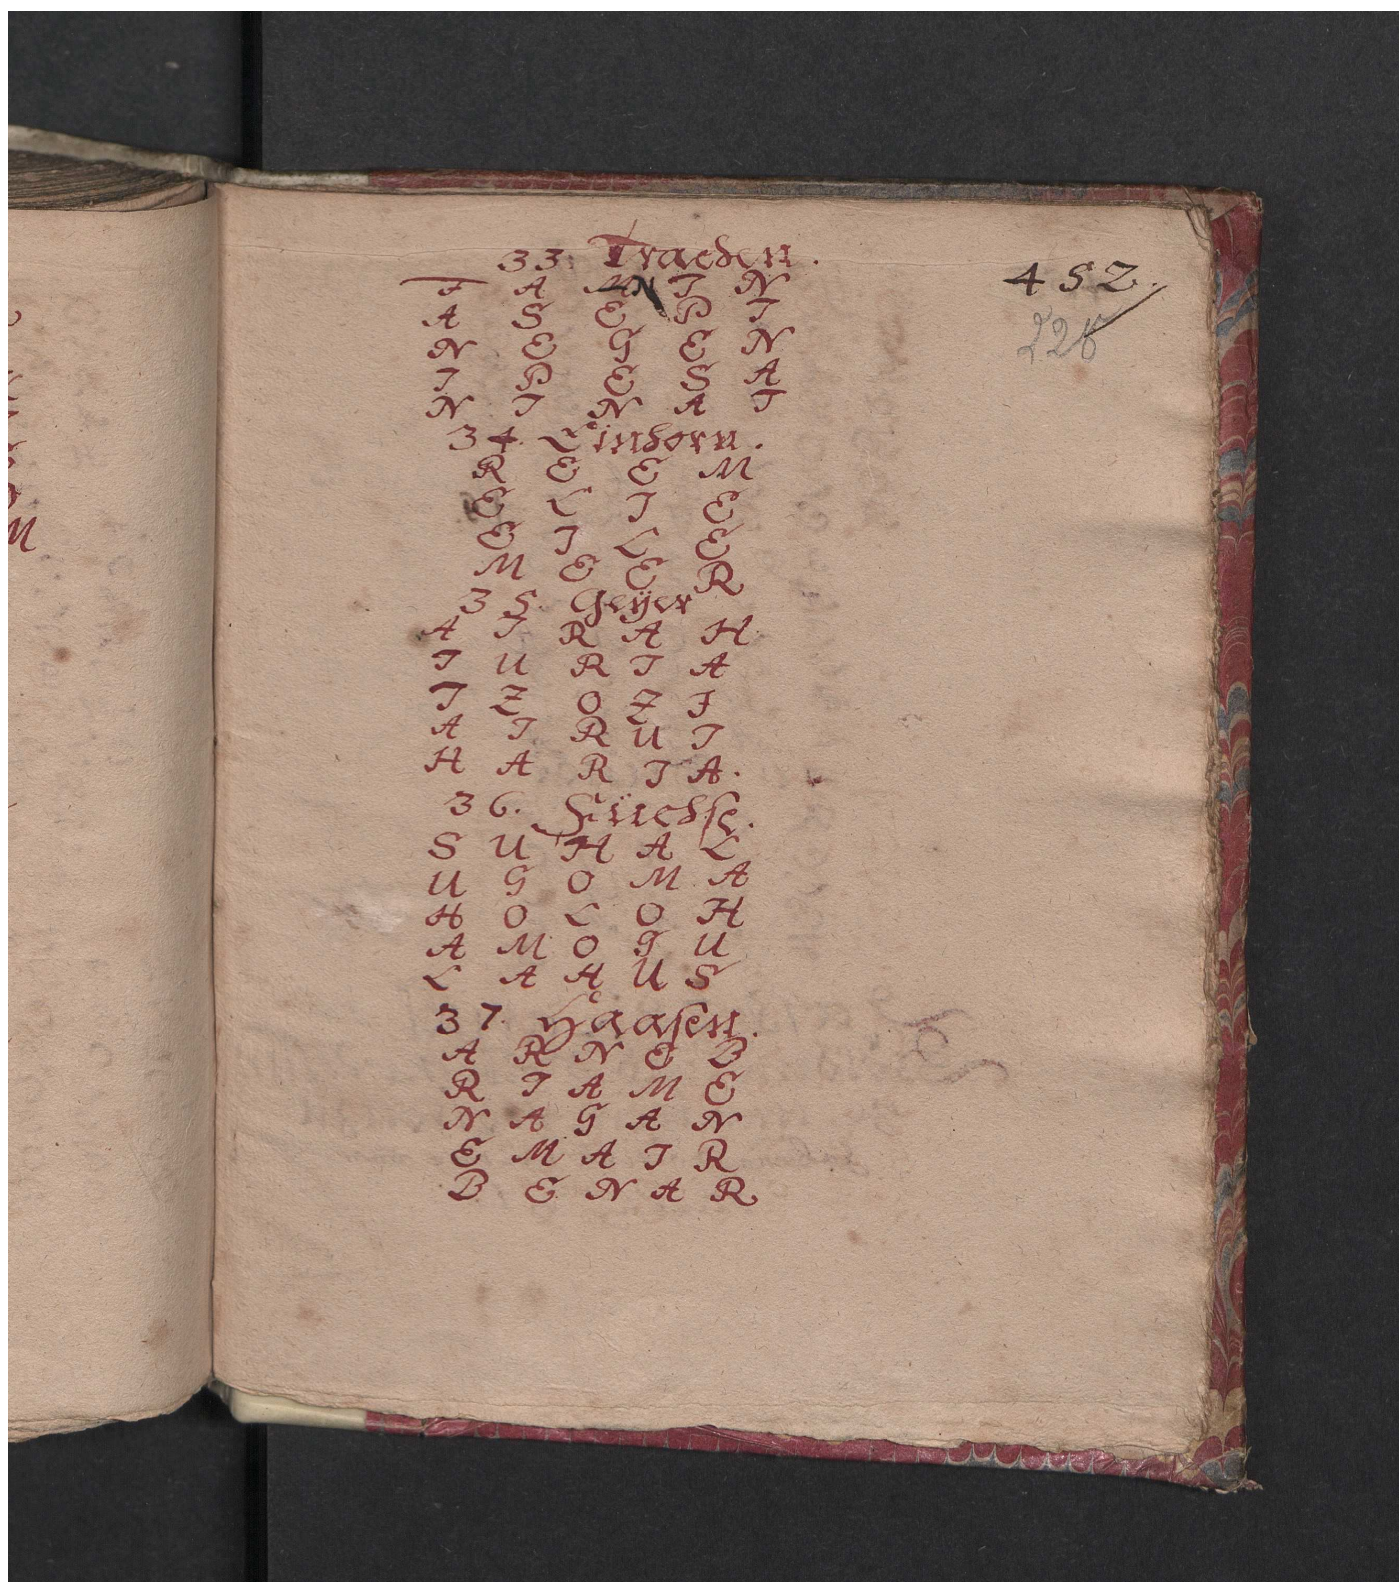 33. Trachen.
452.
T A N I N
A S E P I
N E G E N
I P E S A
N I N A T
34. Einhorn.
R E E M
E L I E
E I L E
M E E R
35. Geÿer
A I R A H
I U R I A
I Z O Z I
A I R U I
H A R I A.
36. Füchse.
S U H A L
U G O M A
H O L O H
A M O G U
L A H U S
37. Haasen.
A R N E B
R I A M E
N A G A N
E M A I R
B E N A R